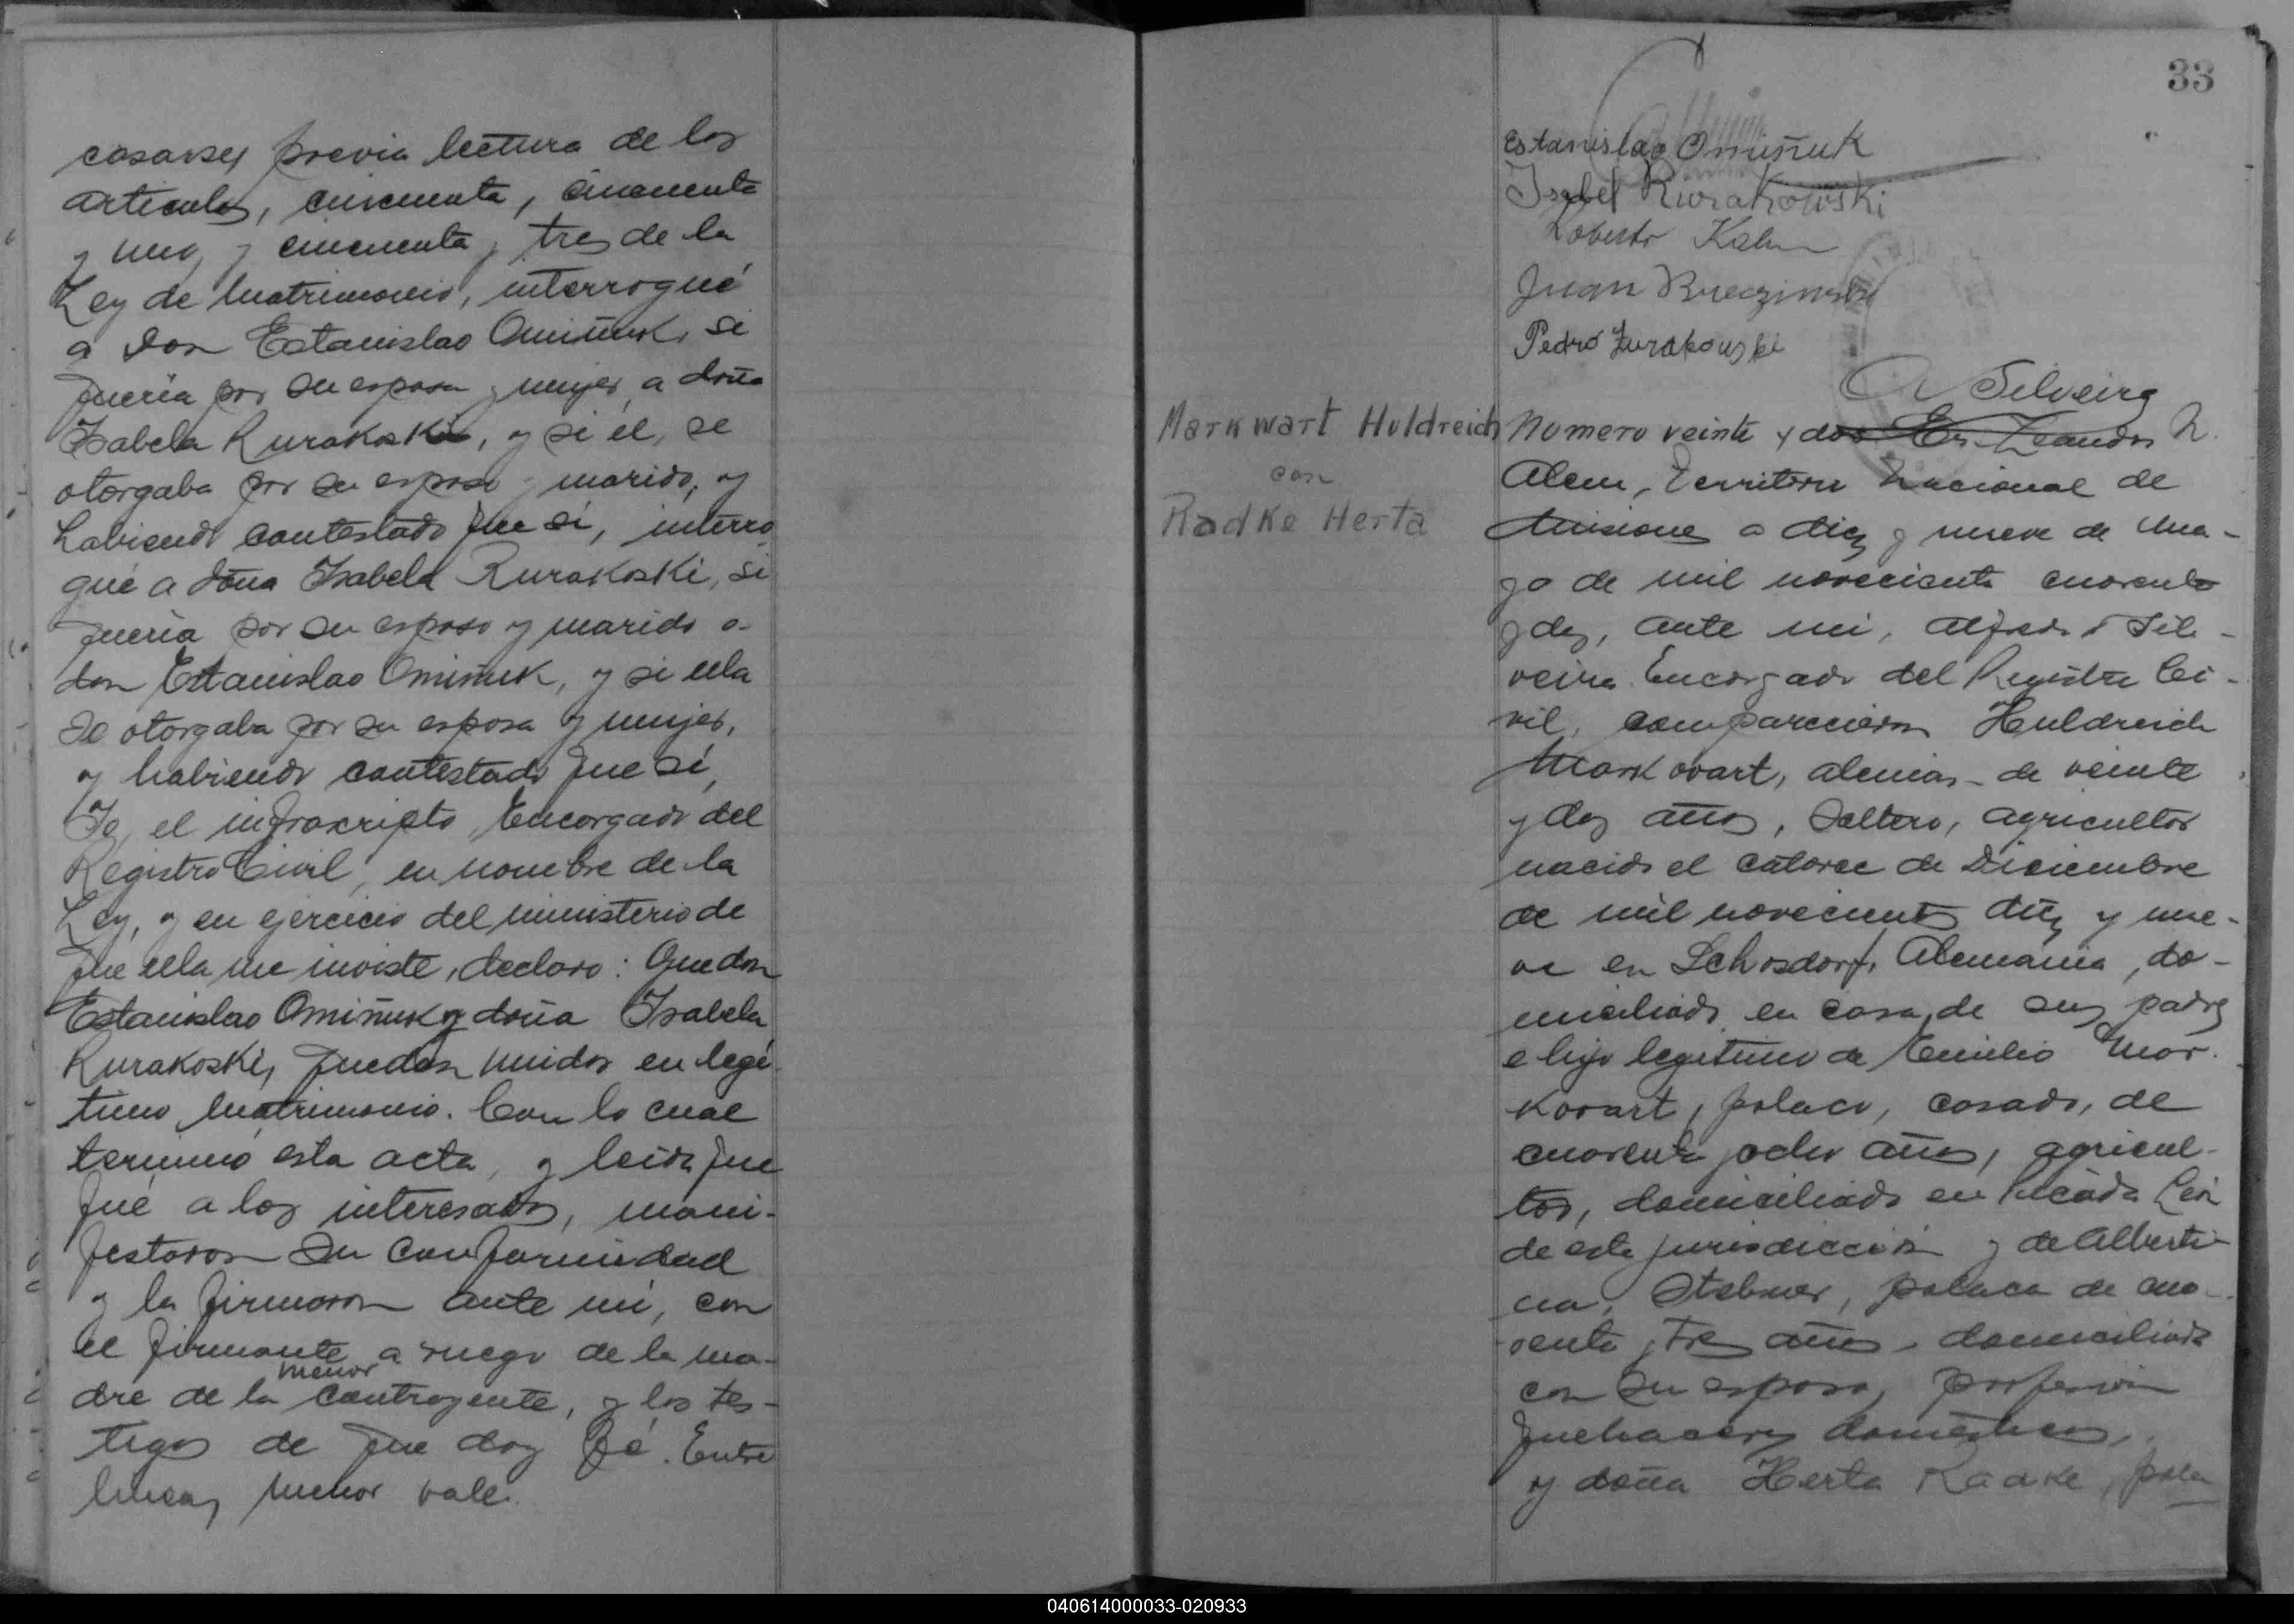 casarse, previa lectura de los
articulos, cincuenta, cincuenta
y uno, y cincuenta y tres de la
Ley de Matrimonio, interrogué
a don Estanislao Omiñuk, si
queria por su esposa y mujer, a doña
Isabela Kurakoski, y si él, se
otorgaba por su esposo y marido, y
habiendo contestado que sí, interro
gué a doña Isabela Kurakoski, si
queria por su esposo y marido a
don Estanislao Omiñuk, y si ella
se otorgaba por su esposa y mujer,
y habiendo contestado que sí,
Yo, el infrascripto, Encargado del
Registro Civil, en nombre de la
Ley, y en ejercicio del ministerio de
que ella me inviste, declaro: Que don
Estanislao Omiñuk y doña Isabela
Kurakoski, quedan unidos en legí
timo Matrimonio. Con lo cual
terminó esta acta, y leida que
fué a los interesados, mani-
festaron su conformidad
y la firmaron ante mi, con
el firmante a ruego de la ma-
menor
dre de la contrayente, y los tes-
tigos de que doy fé. Entre
lineas, menor vale.
33
Estanislao Omiñuk
Isabel Kurakowski
Roberto Kahn
Juan
Pedro Zurakowski
A Silveira
Markwart Huldreich
con
Radke Herta
Numero veinte y dos En Leandro N.
Alem, Territorio Nacional de
Misiones a diez y nueve de Ma-
yo de mil novecientos cuarenta
y dos, ante mi, Alfredo Sil-
veira Encargado del Registro Ci-
vil, comparecieron Huldreich
Markovart, aleman de veinte
y dos años, soltero, agricultor
nacido el catorce de Diciembre
de mil novecientos diez y nue-
ve en Lehosdorf, Alemania, do-
miciliado en casa de sus padres
e hijo legitimo de Emilio Mar-
kovart, polaco, casado, de
cuarenta y ocho años, agricul-
tor, domiciliado en Picada
de esta jurisdicción y de Alberti-
na, polaca de cua-
renta y tres años, domiciliada
con su esposo, profesión
quehaceres domésticos,
y doña Herta Radke, pola
040614000033-020933